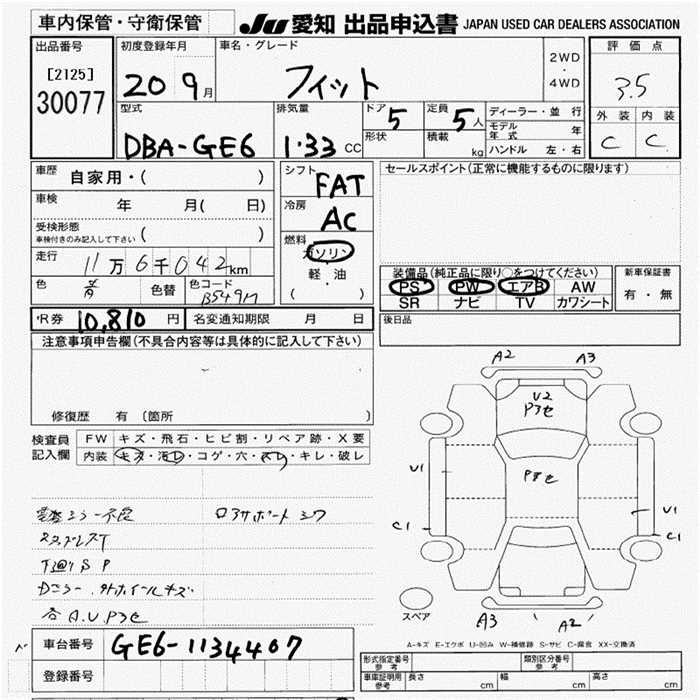 車内保管・守衛保管
JU 愛知 出品申込書 JAPAN USED CAR DEALERS ASSOCIATION
出品番号
[2125]
30077
初度登録年月
20 9月
車名・グレード
フィット
2WD
・
4WD
評価点
3.5
外装 内装
C C
型式
DBA-GE6
排気量
1.33 CC
ドア 5
形状
定員 5人
積載 kg
ディーラー・並行
モデル年式 年
ハンドル 左・右
車歴 自家用・( )
車検 年 月( 日)
受検形態
車検付きのみ記入して下さい ( )
走行 11万6千042km
色 青 色替 色コード B549M
シフト FAT
冷房 AC
燃料
ガソリン
軽・油
( )
セールスポイント(正常に機能するものに限ります)
装備品(純正品に限り○をつけてください)
PS PW エアB AW
SR ナビ TV カワシート
新車保証書
有・無
後日品
R券 10,810円 名変通知期限 月 日
注意事項申告欄(不具合内容等は具体的に記入して下さい)
修復歴 有 (箇所
検査員記入欄
FW キズ・飛石・ヒビ割・リペア跡・X要
内装 キズ・汚レ・コゲ・穴・スレ・キレ・破レ
ミラー不良 ロアサポート シワ
スタッドレスT
Dミラー、外ホイールキズ
各A.U.Pヨセ
A2 A3
U2
Pヨセ
Pヨセ
U1
C1
U1
C1
スペア
A3 A2
A-キズ E-エクボ U-凹み W-補修跡 S-サビ C-腐食 XX-交換済
車台番号 GE6-1134407
登録番号
形式指定番号 参考
類別区分番号 参考
車庫証明用 参考 長さ cm 幅 cm 高さ cm